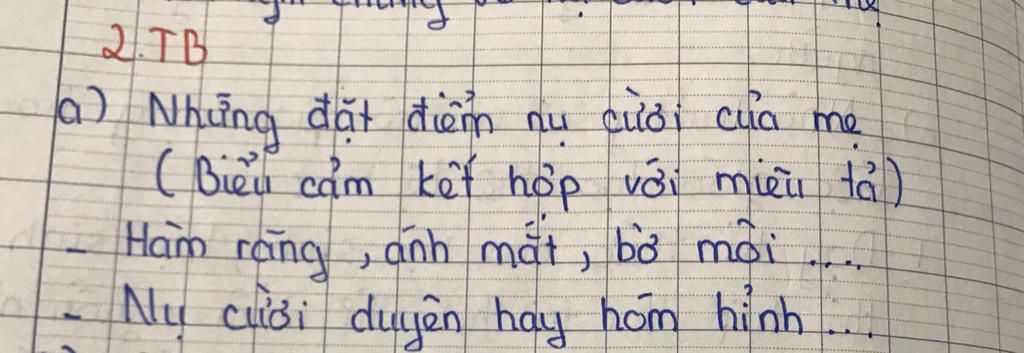 2. TB
a) Những đặt điểm nụ cười của mẹ
( Biểu cảm kết hợp với miêu tả )
- Hàm răng , ánh mắt , bờ môi ....
- Nụ cười duyên hay hóm hỉnh ...